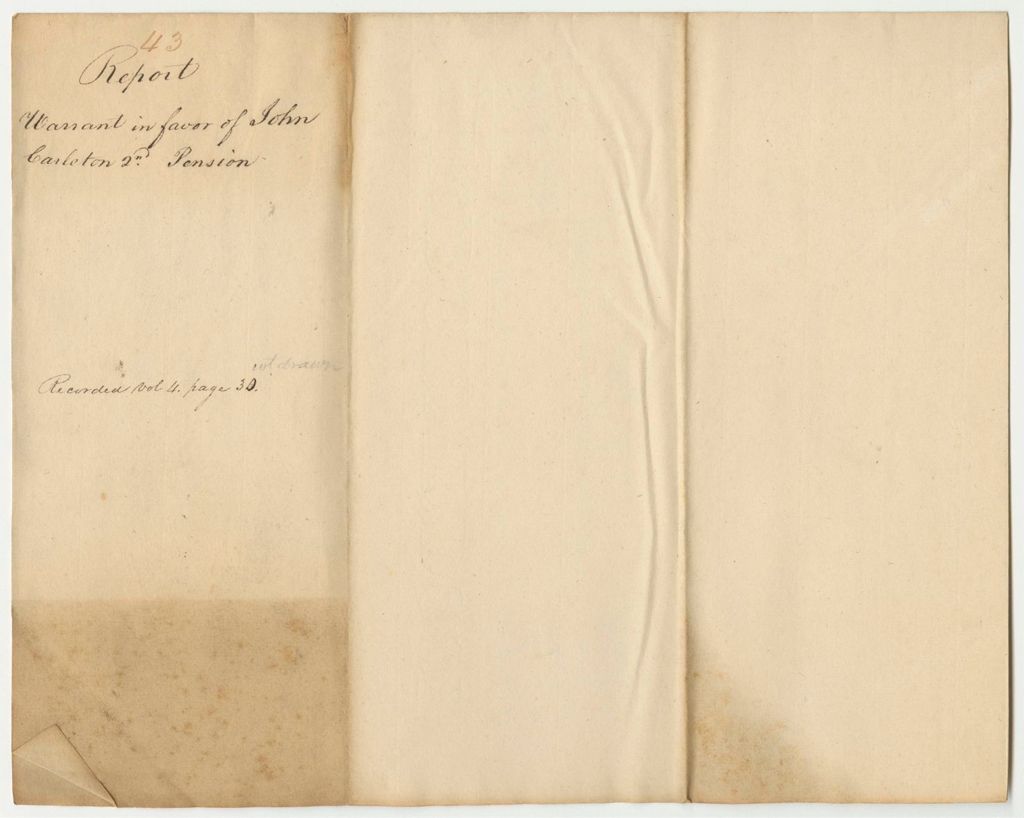 43
Report
Warrant in favor of John
Carleton 2nd Pension
not drawn
Recorded vol 4. page 30.